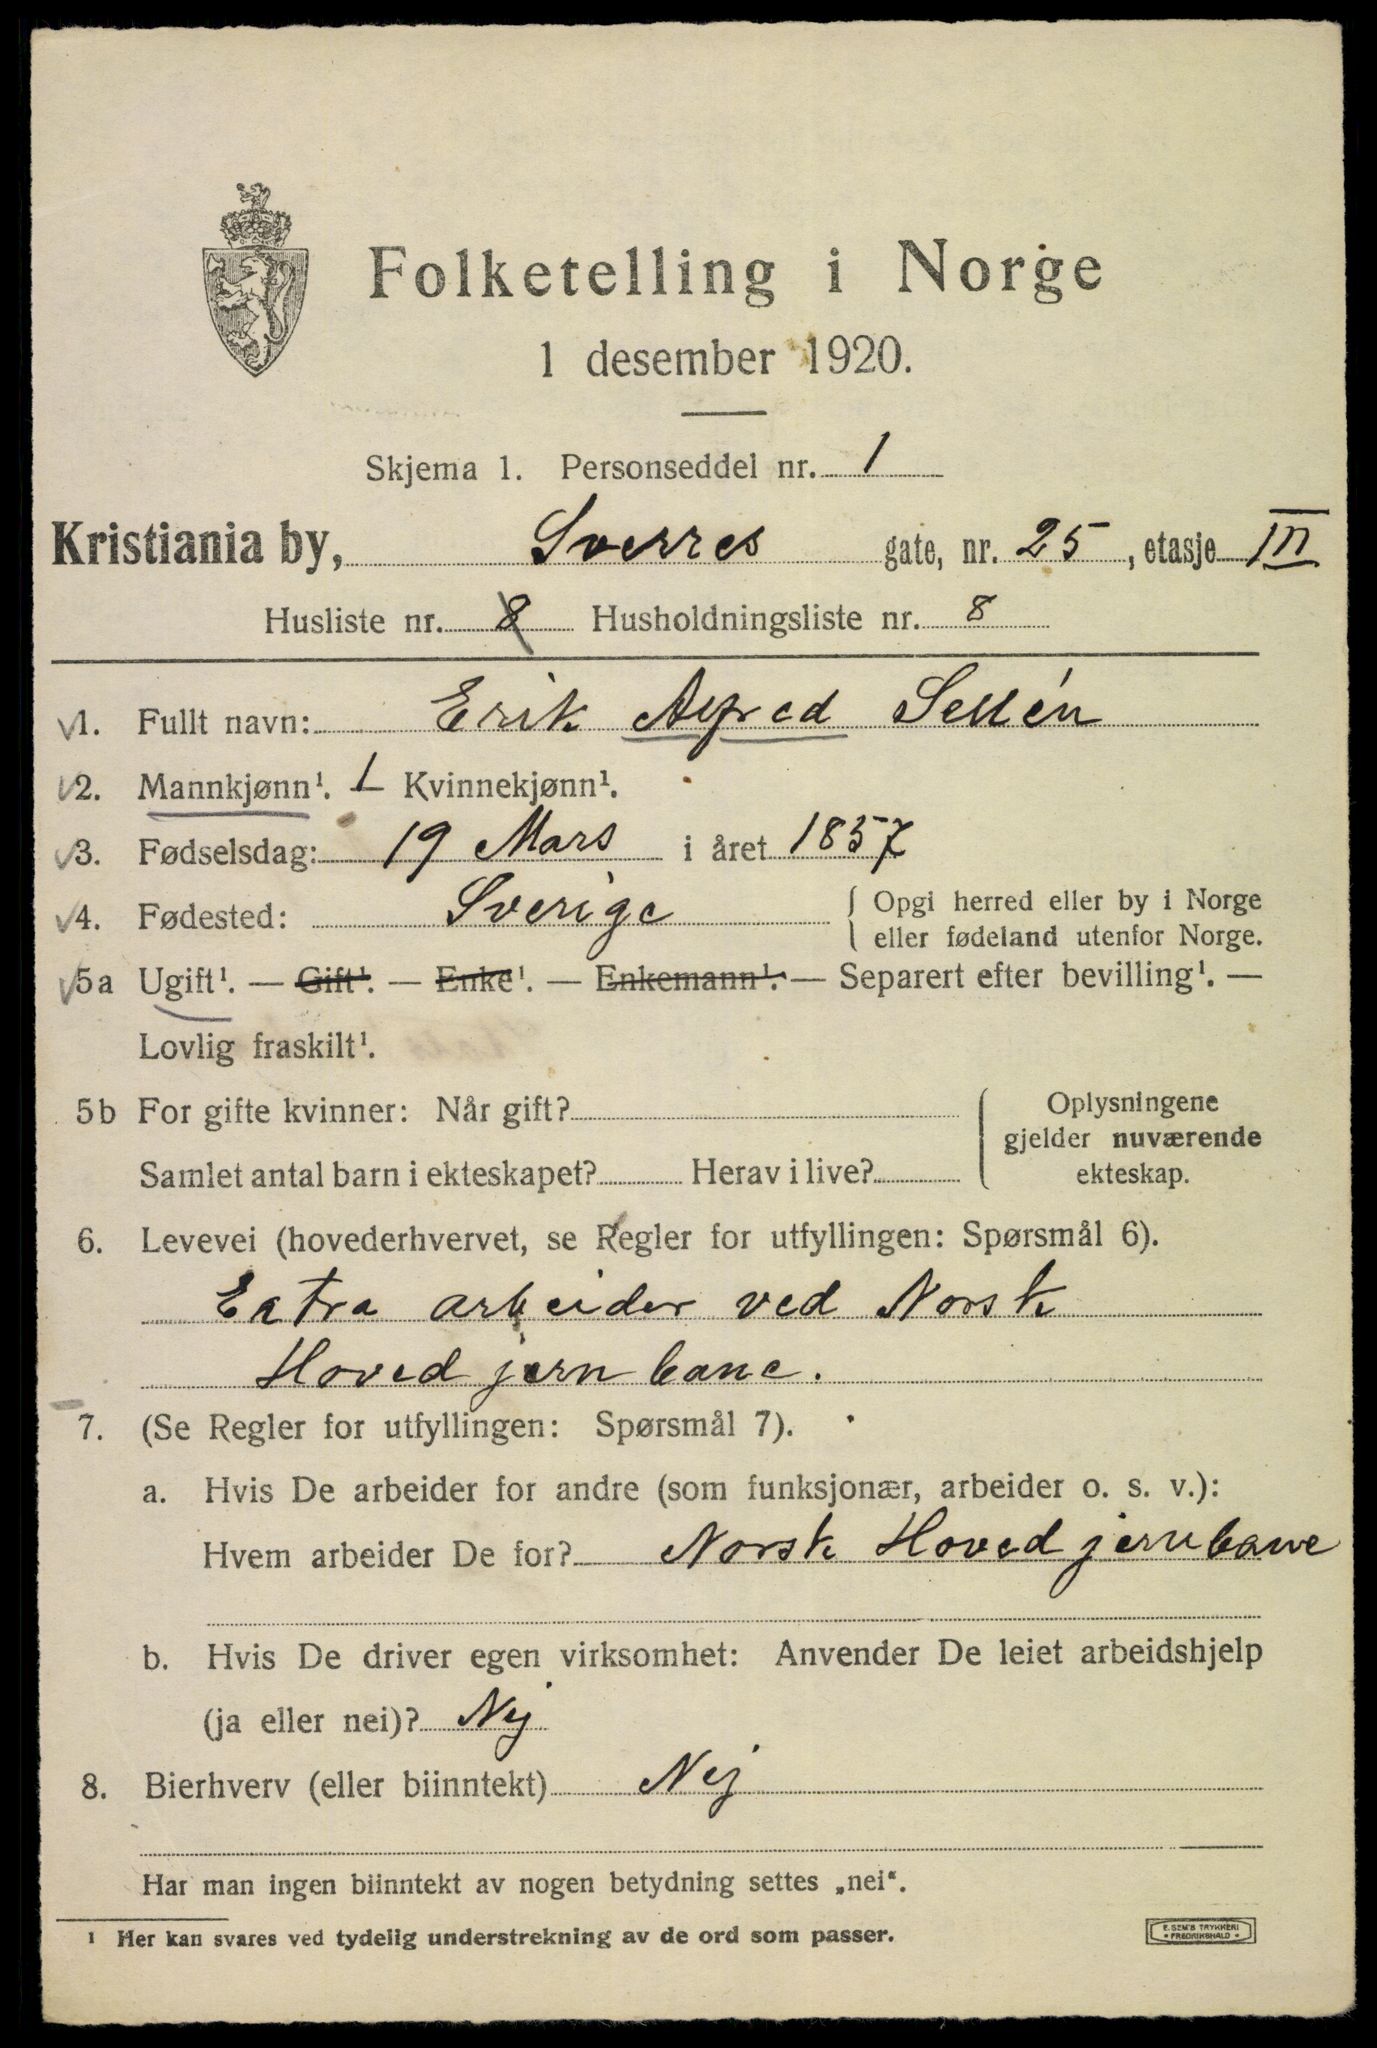 Folketelling i Norge
1 desember 1920.
Skjema 1. Personseddel nr. 1
Kristiania by, Sverres gate, nr. 25, etasje III
Husliste nr. 8 Husholdningsliste nr. 8
1. Fullt navn: Erik Alfred Sellén
2. Mannkjønn¹. 1 Kvinnekjønn¹.
3. Fødselsdag: 19 Mars i året 1857
4. Fødested: Sverige { Opgi herred eller by i Norge
eller fødeland utenfor Norge.
5a Ugift¹. — Gift¹. — Enke¹. — Enkemann¹. — Separert efter bevilling¹. —
Lovlig fraskilt¹.
5b For gifte kvinner: Når gift? { Oplysningene
gjelder nuværende
Samlet antal barn i ekteskapet? Herav i live? ekteskap.
6. Levevei (hovederhvervet, se Regler for utfyllingen: Spørsmål 6).
Extra arbeider ved Norsk
Hoved jernbane.
7. (Se Regler for utfyllingen: Spørsmål 7).
a. Hvis De arbeider for andre (som funksjonær, arbeider o. s. v.):
Hvem arbeider De for? Norsk Hoved jernbane
b. Hvis De driver egen virksomhet: Anvender De leiet arbeidshjelp
(ja eller nei)? Nej
8. Bierhverv (eller biinntekt) Nej
Har man ingen biinntekt av nogen betydning settes „nei“.
¹ Her kan svares ved tydelig understrekning av de ord som passer.
E. SEM'S TRYKKERI
• FREDRIKSHALD •